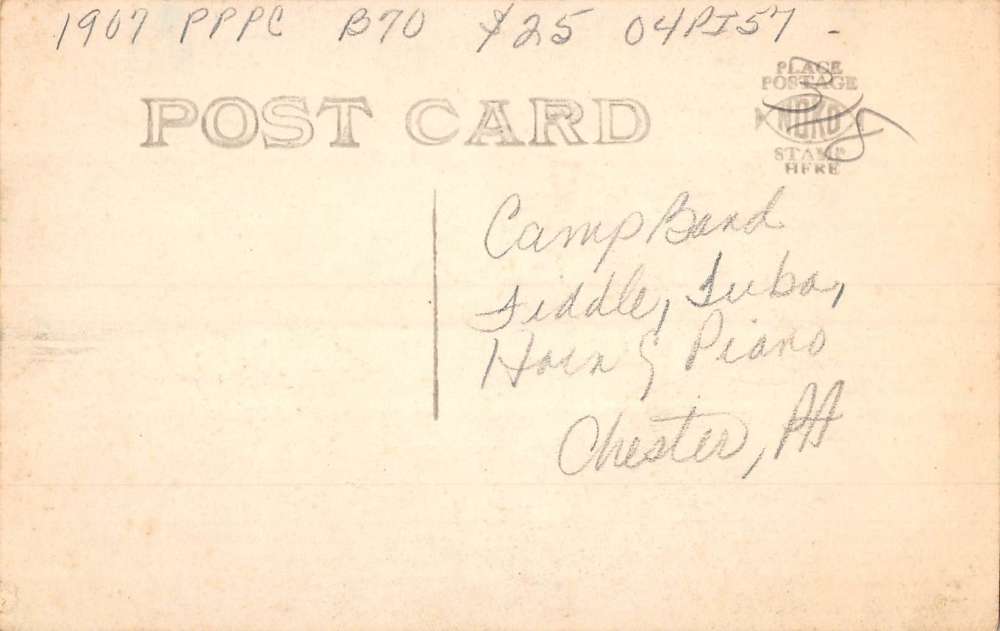 1907 PPPC B70 $25 04PI57 -
POST CARD
PLACE
POSTAGE
NOKO
STAMP
HERE
Camp Band
Fiddle, Tuba,
Horn & Piano
Chester, PA